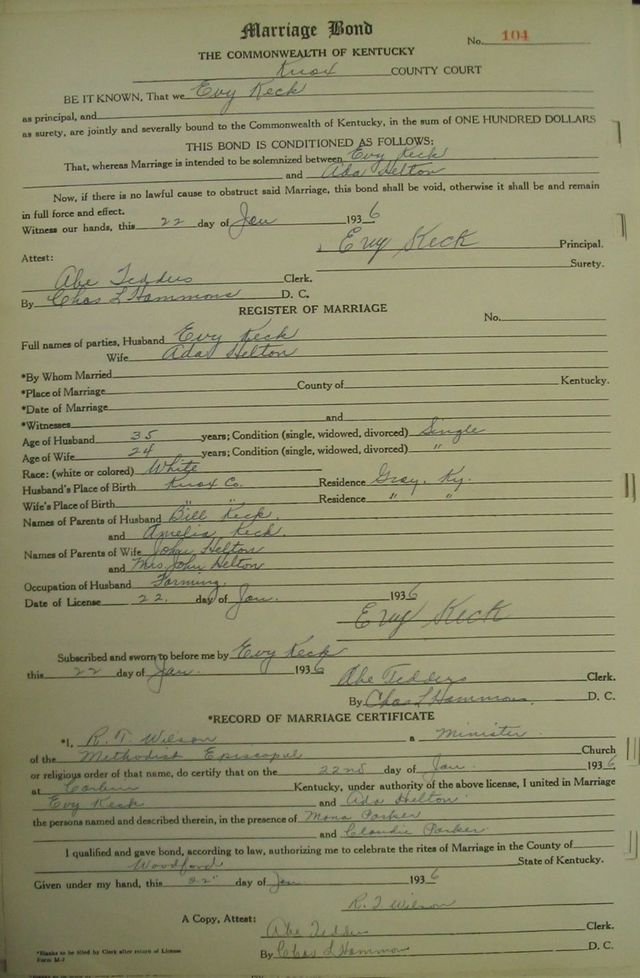 Marriage Bond
No. 104
THE COMMONWEALTH OF KENTUCKY
Knox COUNTY COURT
BE IT KNOWN, That we Evy Keck
as principal, and
as surety, are jointly and severally bound to the Commonwealth of Kentucky, in the sum of ONE HUNDRED DOLLARS
THIS BOND IS CONDITIONED AS FOLLOWS:
That, whereas Marriage is intended to be solemnized between Evy Keck
and Ada Helton
Now, if there is no lawful cause to obstruct said Marriage, this bond shall be void, otherwise it shall be and remain
in full force and effect.
Witness our hands, this 22 day of Jan 1936
Evy Keck Principal.
Attest: Surety.
Abe Tedders Clerk.
By Chas L Hammons D. C.
REGISTER OF MARRIAGE
No.
Full names of parties, Husband Evy Keck
Wife Ada Helton
*By Whom Married
*Place of Marriage County of Kentucky.
*Date of Marriage
*Witnesses and
Age of Husband 35 years; Condition (single, widowed, divorced) Single
Age of Wife 24 years; Condition (single, widowed, divorced) "
Race: (white or colored) White
Husband's Place of Birth Knox Co. Residence Gray, Ky.
Wife's Place of Birth " " Residence " "
Names of Parents of Husband Bill Keck.
and Amelia Keck.
Names of Parents of Wife John Helton
and Mrs John Helton
Occupation of Husband Farming.
Date of License 22. day of Jan. 1936
Evy Keck
Subscribed and sworn to before me by Evy Keck
this 22 day of Jan. 1936 Abe Tedders Clerk.
By Chas L Hammons. D. C.
*RECORD OF MARRIAGE CERTIFICATE
*I, R. T. Wilson a Minister
of the Methodist Episcopal Church
or religious order of that name, do certify that on the 22nd day of Jan. 1936,
at Corbin Kentucky, under authority of the above license, I united in Marriage
Evy Keck and Ada Helton.
the persons named and described therein, in the presence of Mona Parker
and Claudie Parker.
I qualified and gave bond, according to law, authorizing me to celebrate the rites of Marriage in the County of
Woodford State of Kentucky.
Given under my hand, this 22" day of Jan 1936
R. T Wilson
A Copy, Attest: Abe Tedders Clerk.
By Chas L Hammons D. C.
*Blanks to be filled by Clerk after return of License
Form M-7